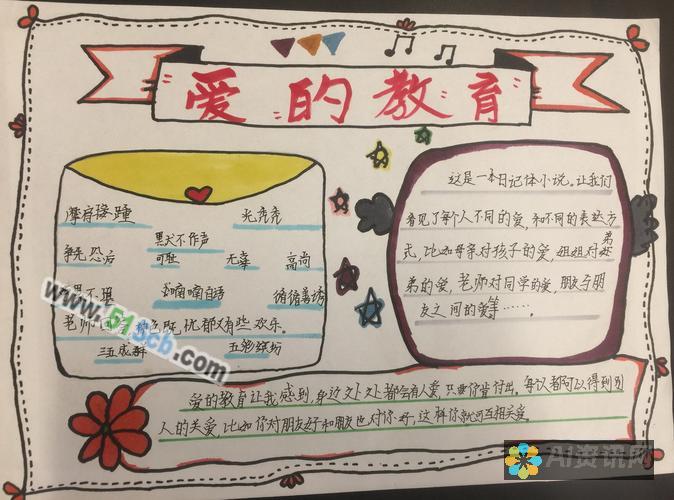 爱的教育
摩肩接踵 光秃秃
默不作声
争先恐后 可耻 无辜 高尚
不理 喃喃自语 循循善诱
老师 色既忧郁又有些欢乐。
三五成群 五彩缤纷
这是一本日记体小说。让我们
看见了每个人不同的爱,和不同的表达方
式,比如母亲对孩子的爱,姐姐对弟
弟的爱,老师对同学的爱,朋友与朋
友之间的爱等……。
爱的教育让我感到,身边处处都会有人爱,只要你肯付出。每次都可以得到别
人的关爱,比如你对朋友好和朋友也对你好,这样你就可互相关爱。
www.51scb.com
AI资讯网